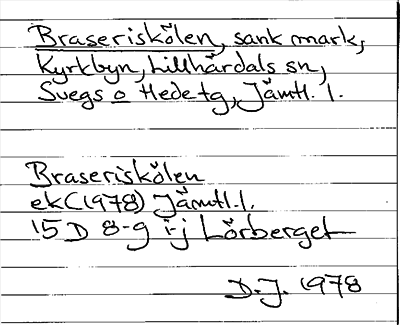 Braseriskölen, sank mark,
Kyrkbyn, Lillhärdals sn,
Svegs o Hede tg, Jämtl. l.
Braseriskölen
ekC(1978) Jämtl. l.
15 D 8-9 i-j Lörberget
D.J. 1978